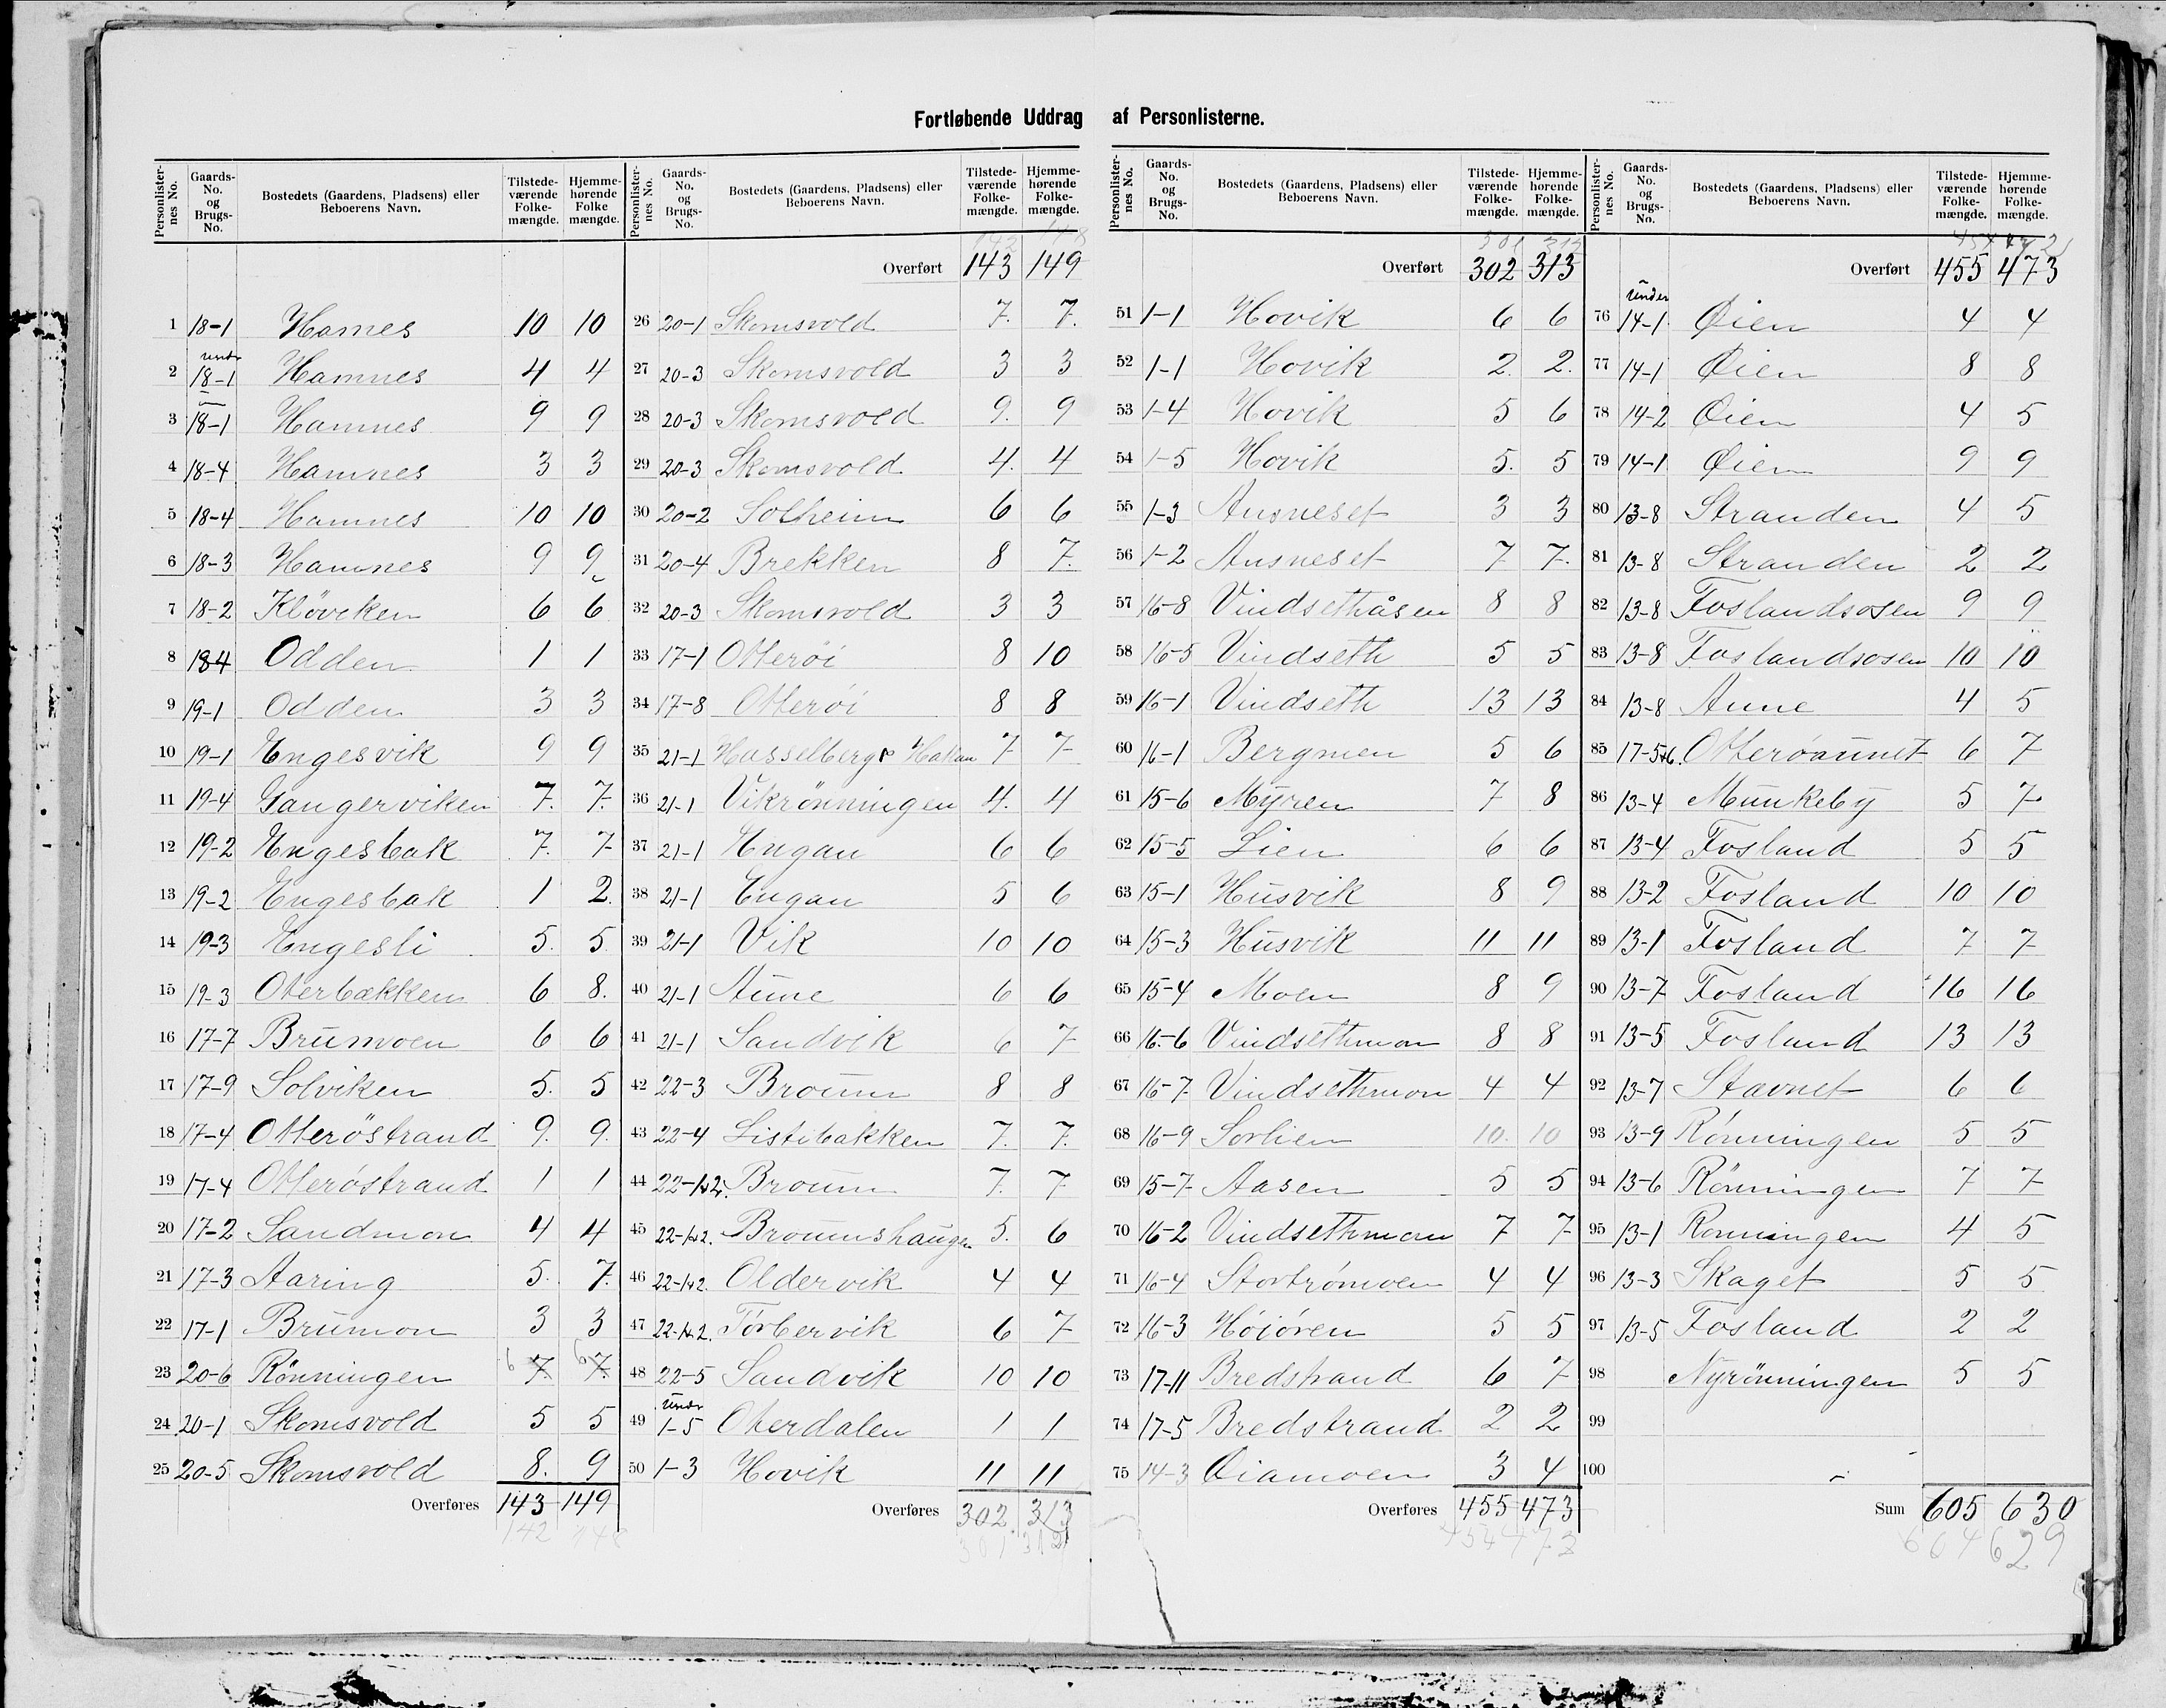 Fortløbende Uddrag af Personlisterne.
Personlisternes No. Gaards-No. og Brugs-No. Bostedets (Gaardens, Pladsens) eller Beboerens Navn. Tilstedeværende Folkemængde. Hjemmehørende Folke mængde.
1 18-1 Hamnes 10 10
2 under 18-1 Hamnes 4 4
3 18-1 Hamnes 9 9
4 18-4 Hamnes 3 3
5 18-4 Hamnes 10 10
6 18-3 Hamnes 9 9
7 18-2 Kløviken 6 6
8 18-4 Odden 1 1
9 19-1 Odden 3 3
10 19-1 Engesvik 9 9
11 19-4 Gangerviken 7. 7.
12 19-2 Engesbak 7. 7
13 19-2 Engesbak 1 2.
14 19-3 Engesli 5. 5
15 19-3 Oterbækken 6 8.
16 17-7 Brümoen 6 6
17 17-9 Solviken 5. 5
18 17-4 Otteröstrand 9. 9.
19 17-4 Otteröstrand 1 1
20 17-2 Sandmon 4 4
21 17-3 Aaring 5. 7.
22 17-1 Brümon 3 3
23 20-6 Rönningen 6 7 6 7.
24 20-1 Skomsvold 5 5
25 20-5 Skomsvold 8. 9
Overføres 143 149
142 148
Personlisternes No. Gaards-No. og Brugs-No. Bostedets (Gaardens, Pladsens) eller Beboerens Navn. Tilstedeværende Folkemængde. Hjemmehørende Folkemængde.
142 148
Overført 143 149
26 20-1 Skomsvold 7. 7.
27 20-3 Skomsvold 3 3
28 20-3 Skomsvold 9. 9
29 20-3 Skomsvold 4. 4
30 20-2 Solheim 6 6
31 20-4 Brekken 8 7.
32 20-3 Skomsvold 3 3
33 17-1 Otteröi 8 10
34 17-8 Otteröi 8 8
35 21-1 Hasselberg Hakan 7 7
36 21-1 Vikrönningen 4. 4
37 21-1 Engan 6 6
38 21-1 Engan 5 6
39 21-1 Vik 10 10
40 21-1 Aune 6 6
41 21-1 Sandvik 6 7
42 22-3 Broum 8 8
43 22-4 Listibakken 7. 7.
44 22-1+2. Broum 7. 7
45 22-1+2. Broumshaugen 5. 6
46 22-1+2. Oldervik 4 4
47 22-1+2. Torbervik 6 7
48 22-5 Sandvik 10 10
49 under 1-5 Oterdalen 1 1
50 1-3 Hovik 11 11
Overføres 302. 313
301 312
Personlisternes No. Gaards-No. og Brugs-No. Bostedets (Gaardens, Pladsens) eller Beboerens Navn. Tilstedeværende Folkemængde. Hjemmehørende Folkemængde.
301 312
Overført 302 313
51 1-1 Hovik 6 6
52 1-1 Hovik 2. 2.
53 1-4 Hovik 5 6
54 1-5 Hovik 5. 5
55 1-3 Ausneset 3 3
56 1-2 Ausneset 7 7.
57 16-8 Vindsethåsen 8 8
58 16-5 Vindseth 5 5
59 16-1 Vindseth 13 13
60 16-1 Bergmen 5 6
61 15-6 Myren 7 8
62 15-5 Lien 6 6
63 15-1 Husvik 8 9
64 15-3 Husvik 11 11
65 15-4 Moen 8 9
66 16-6 Vindsethmon 8 8
67 16-7 Vindsethmon 4 4
68 16-9 Sorlien 10. 10
69 15-7 Aasen 5 5
70 16-2 Vindsethmon 7 7
71 16-4 Stortrómoen 4 4
72 16-3 Höiören 5 5
73 17-11 Bredstrand 6 7
74 17-5 Bredstrand 2 2
75 14-3 Øiamoen 3 4
Overføres 455 473
454 472
Personlisternes No. Gaards-No. og Brugs-No. Bostedets (Gaardens, Pladsens) eller Beboerens Navn. Tilstedeværende Folkemængde. Hjemmehørende Folkemængde.
454 472
Overført 455 473
76 under 14-1 Øien 4 4
77 14-1 Øien 8 8
78 14-2 Øien 4 5
79 14-1 Øien 9 9
80 13-8 Stranden 4 5
81 13-8 Stranden 2 2
82 13-8 Foslandsosen 9 9
83 13-8 Foslandsosen 10 10
84 13-8 Aune 4 5
85 17-5+6. Otteröaunet 6 7
86 13-4 Munkeby 5 7
87 13-4 Fosland 5 5
88 13-2 Fosland 10 10
89 13-1 Fosland 7 7
90 13-7 Fosland 16 16
91 13-5 Fosland 13 13
92 13-7 Stavnet 6 6
93 13-9 Rónningen 5 5
94 13-6 Rönningen 7 7
95 13-1 Ronningen 4 5
96 13-3 Skaget 5 5
97 13-5 Fosland 2 2
98 Nyrönningen 5 5
99
100
Sum 605 630
604 629